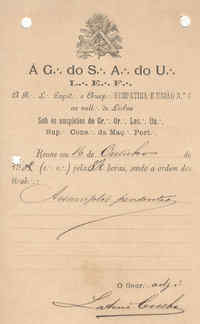 Á G∴ do S∴ A∴ do U∴
L∴ E∴ F∴
Á R∴ L∴ Capit∴ e Benem∴ SYMPATHIA E UNIÃO N.º 4
ao vall∴ de Lisboa
Sob os auspicios do Gr∴ Or∴ Lus∴ Un∴
Sup∴ Cons∴ da Maç∴ Port∴
Reune em 16 de Outubro de
(e∴ v∴) pelas horas, sendo a ordem dos
trab∴
Assumptos pendentes
O Secr∴ adj∴